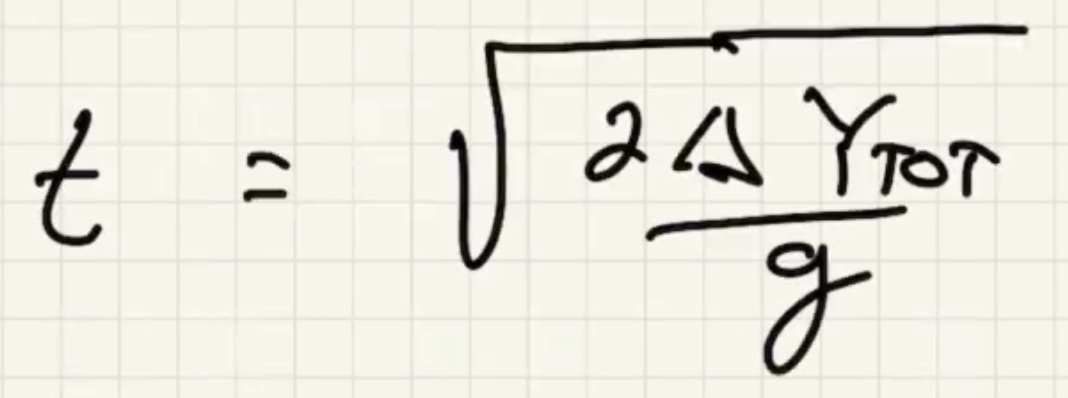 t = √(2ΔY_TOT / g)